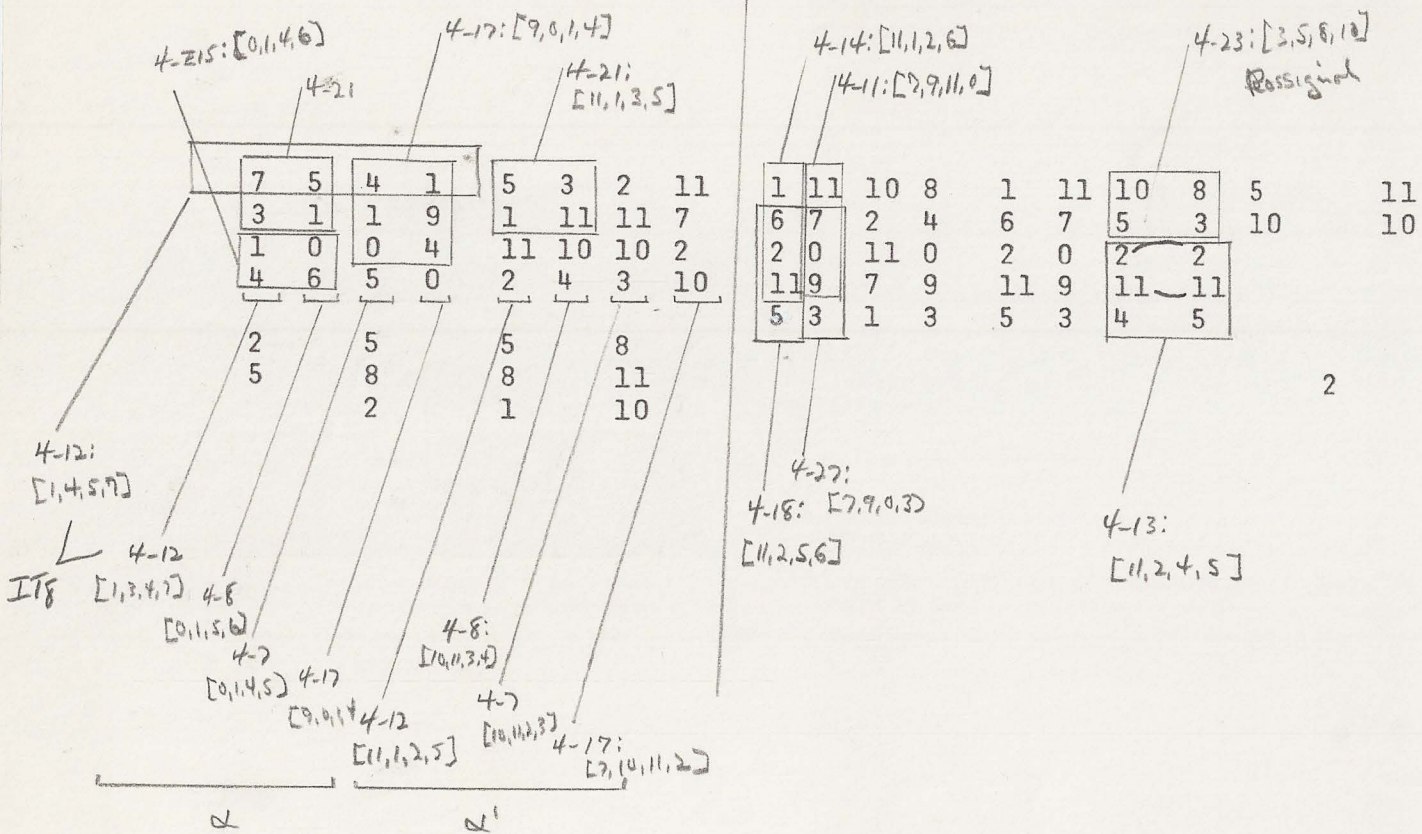 4-Z15: [0,1,4,6]
4-21
4-17: [9,0,1,4]
4-21:
[11,1,3,5]
4-14: [11,1,2,6]
4-11: [7,9,11,0]
4-23: [3,5,8,10]
Rossignol
7 5 4 1 5 3 2 11 1 11 10 8 1 11 10 8 5 11
3 1 1 9 1 11 11 7 6 7 2 4 6 7 5 3 10 10
1 0 0 4 11 10 10 2 2 0 11 0 2 0 2 2
4 6 5 0 2 4 3 10 11 9 7 9 11 9 11 11
5 3 1 3 5 3 4 5
2 5 5 8
5 8 8 11
2 1 10
2
4-12:
[1,4,5,7]
IT8
4-12
[1,3,4,7]
4-8
[0,1,5,6]
4-7
[0,1,4,5]
4-17
[9,0,1,4
4-12
[11,1,2,5]
4-8:
[10,11,3,4]
4-7
[10,11,2,3]
4-17:
[7,10,11,2]
4-18:
[11,2,5,6]
4-27:
[7,9,0,3]
4-13:
[11,2,4,5]
α
α'